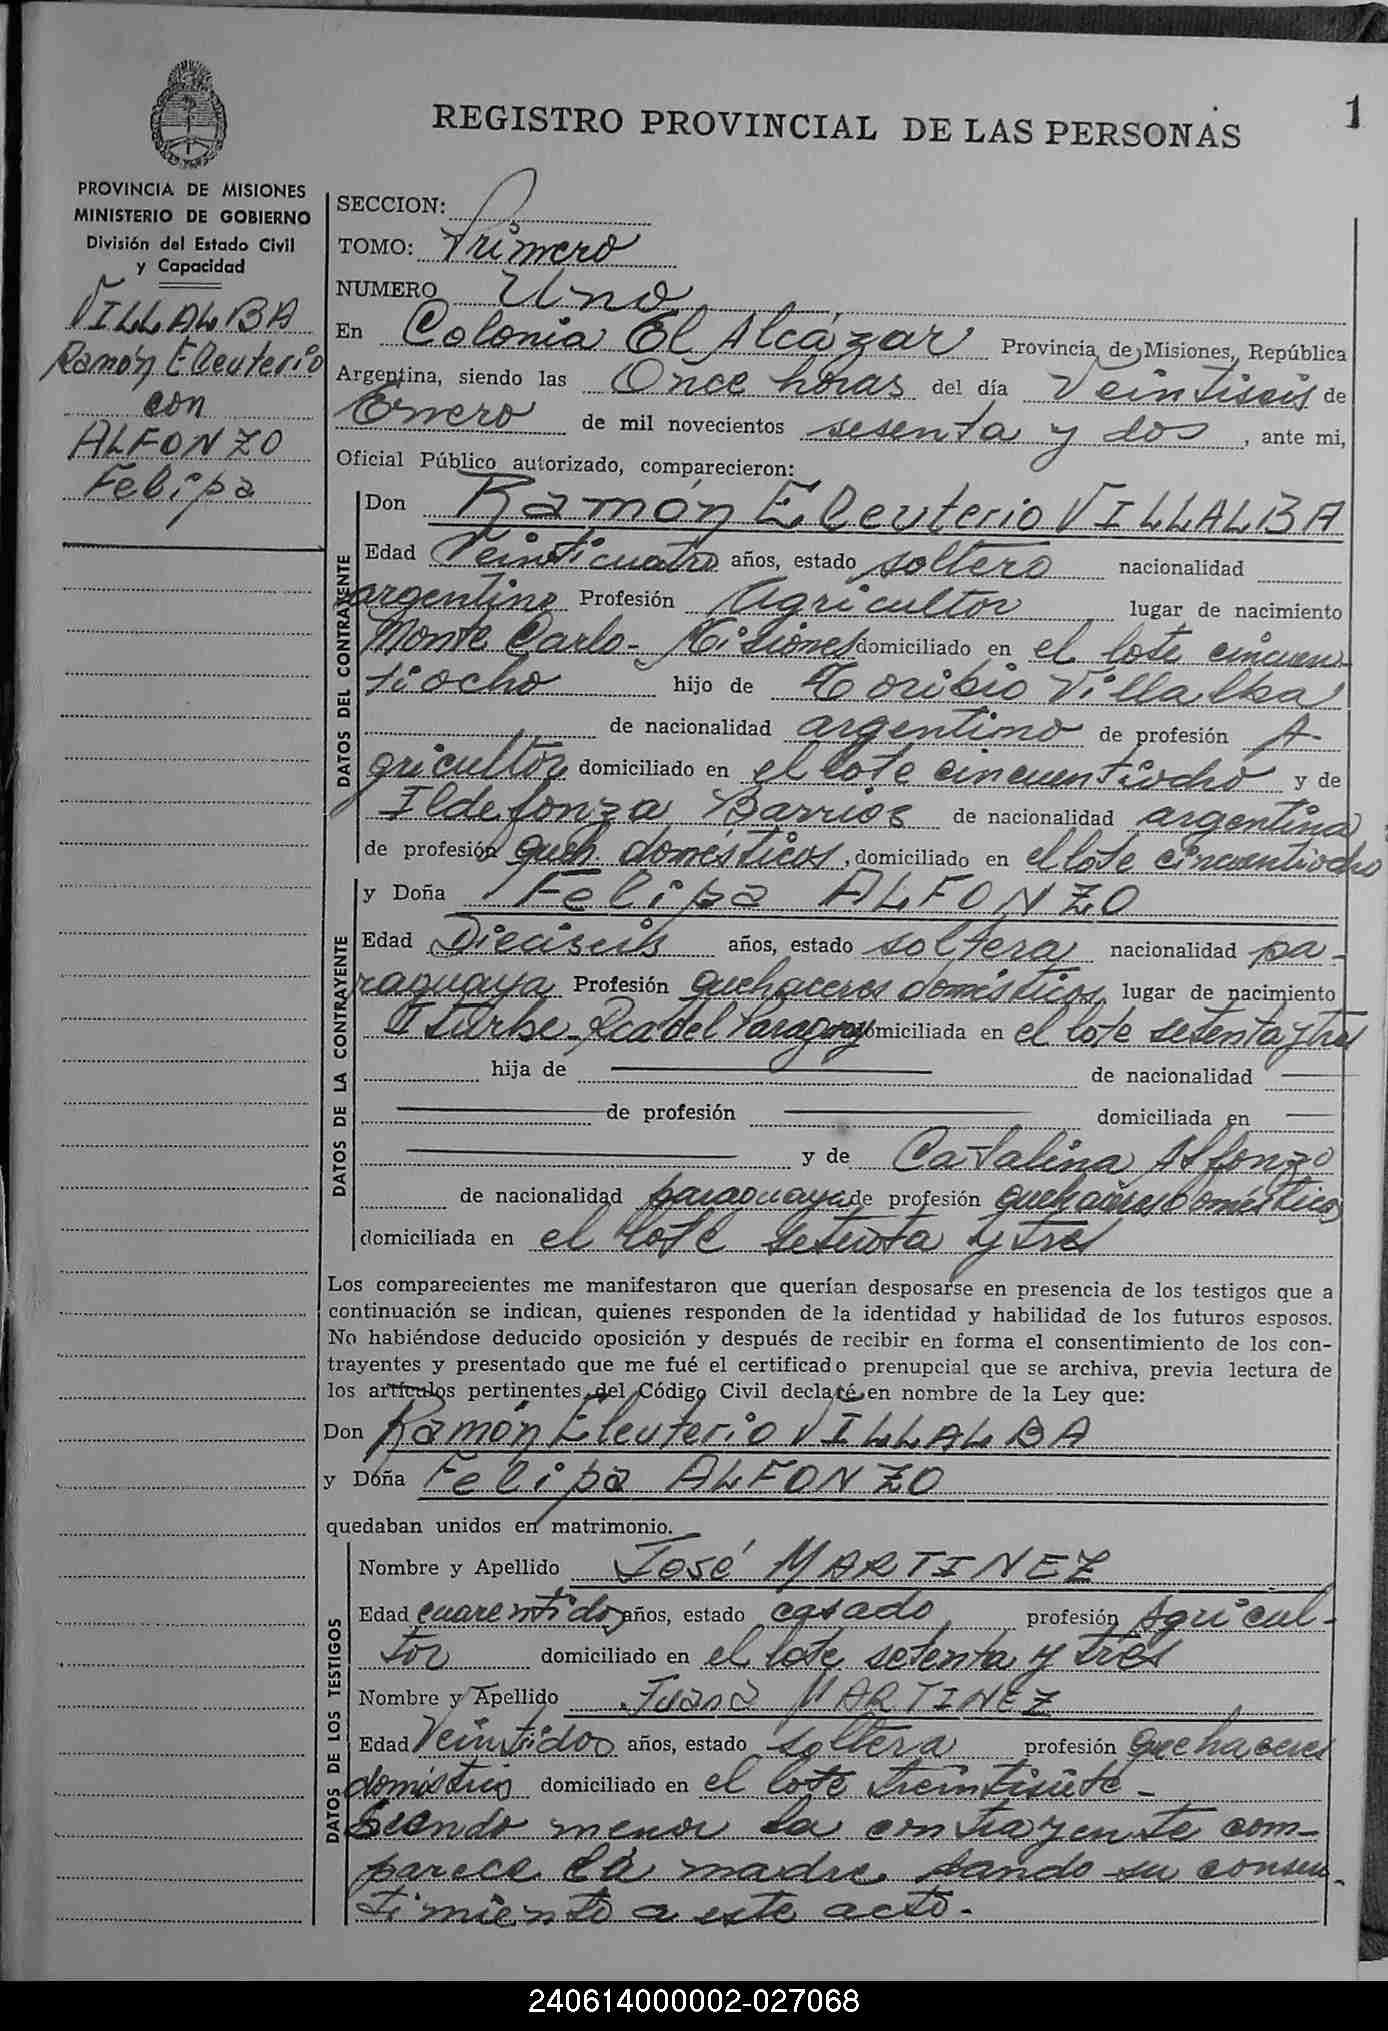 REGISTRO PROVINCIAL DE LAS PERSONAS
1
PROVINCIA DE MISIONES
MINISTERIO DE GOBIERNO
División del Estado Civil
y Capacidad
VILLALBA
Ramón Eleuterio
con
ALFONZO
Felipa
SECCION:
TOMO: Primero
NUMERO Uno
En Colonia El Alcázar Provincia de Misiones, República
Argentina, siendo las Once horas del día Veintiseis de
Enero de mil novecientos sesenta y dos, ante mi,
Oficial Público autorizado, comparecieron:
DATOS DEL CONTRAYENTE
Don Ramón Eleuterio VILLALBA
Edad Veinticuatro años, estado soltero nacionalidad
argentino Profesión Agricultor lugar de nacimiento
Monte Carlo - Misiones domiciliado en el lote cincuen-
tiocho hijo de Toribio Villalba
de nacionalidad argentino de profesión A-
gricultor domiciliado en el lote cincuentiocho y de
Ildefonza Barrios de nacionalidad argentina
de profesión queh. domésticos, domiciliado en el lote cincuentiocho
DATOS DE LA CONTRAYENTE
y Doña Felipa ALFONZO
Edad Dieciseis años, estado soltera nacionalidad pa-
raguaya Profesión quehaceres domésticos lugar de nacimiento
Iturbe - Rca del Paraguay domiciliada en el lote setenta y tres
hija de de nacionalidad
de profesión domiciliada en
y de Catalina Alfonzo
de nacionalidad paraguaya de profesión quehaceres domésticos
domiciliada en el lote setenta y tres
Los comparecientes me manifestaron que querían desposarse en presencia de los testigos que a
continuación se indican, quienes responden de la identidad y habilidad de los futuros esposos.
No habiéndose deducido oposición y después de recibir en forma el consentimiento de los con-
trayentes y presentado que me fué el certificado prenupcial que se archiva, previa lectura de
los artículos pertinentes del Código Civil declaré en nombre de la Ley que:
Don Ramón Eleuterio VILLALBA
y Doña Felipa ALFONZO
quedaban unidos en matrimonio.
DATOS DE LOS TESTIGOS
Nombre y Apellido José MARTINEZ
Edad cuarentidos años, estado casado profesión Agricul-
tor domiciliado en el lote setenta y tres
Nombre y Apellido Juana MARTINEZ
Edad Veintidos años, estado soltera profesión quehaceres
domésticos domiciliado en el lote treintisiete -
Siendo menor la contrayente com-
parece la madre dando su consen-
timiento a este acto.-
240614000002-027068